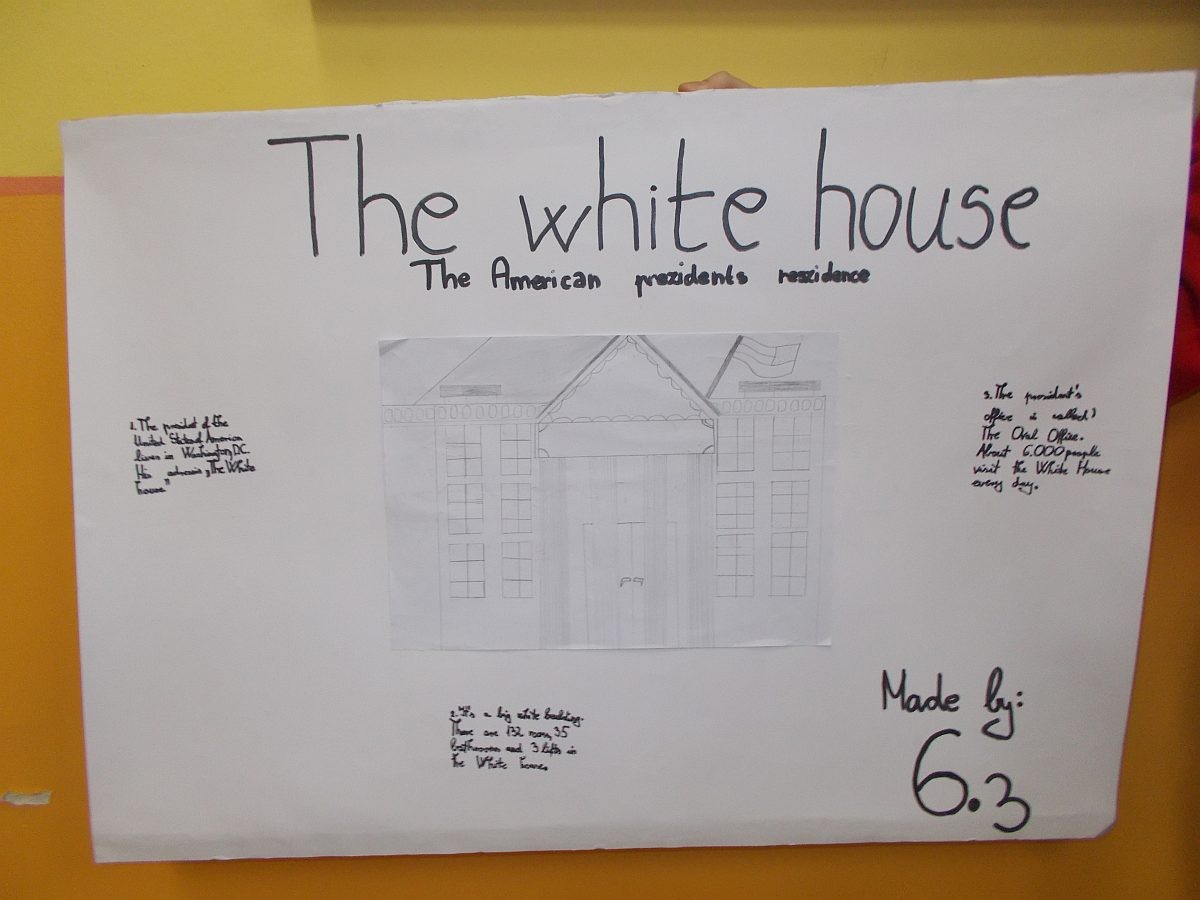 The white house
The American prezidents reszidence
1. The presidet of the
United Statesof America
lives in Washington,DC.
His adressis „The White
house"
3. The president's
office is called:
The Oval Office.
About 6.000 people
visit the White House
every day.
2. It's a big white building.
There are 132 room, 35
bathrooms and 3 lifts in
the White house.
Made by:
6.3